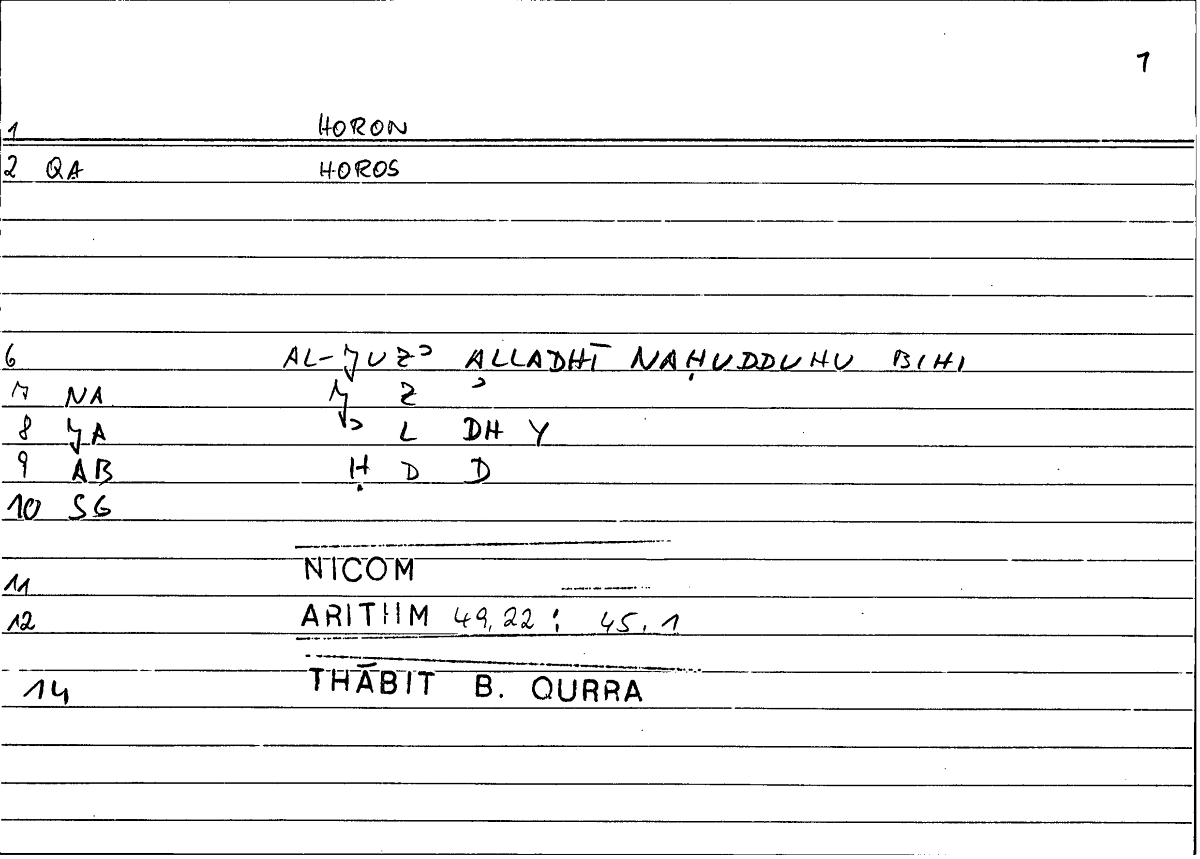 1
1 HORON
2 QA HOROS
6 AL-JUZʾ ALLADHĪ NAḤUDDUHU BIHI
7 NA J Z ʾ
8 JA ʾ L DH Y
9 AB Ḥ D D
10 SG
11 NICOM
12 ARITHM 49,22 : 45.1
14 THĀBIT B. QURRA